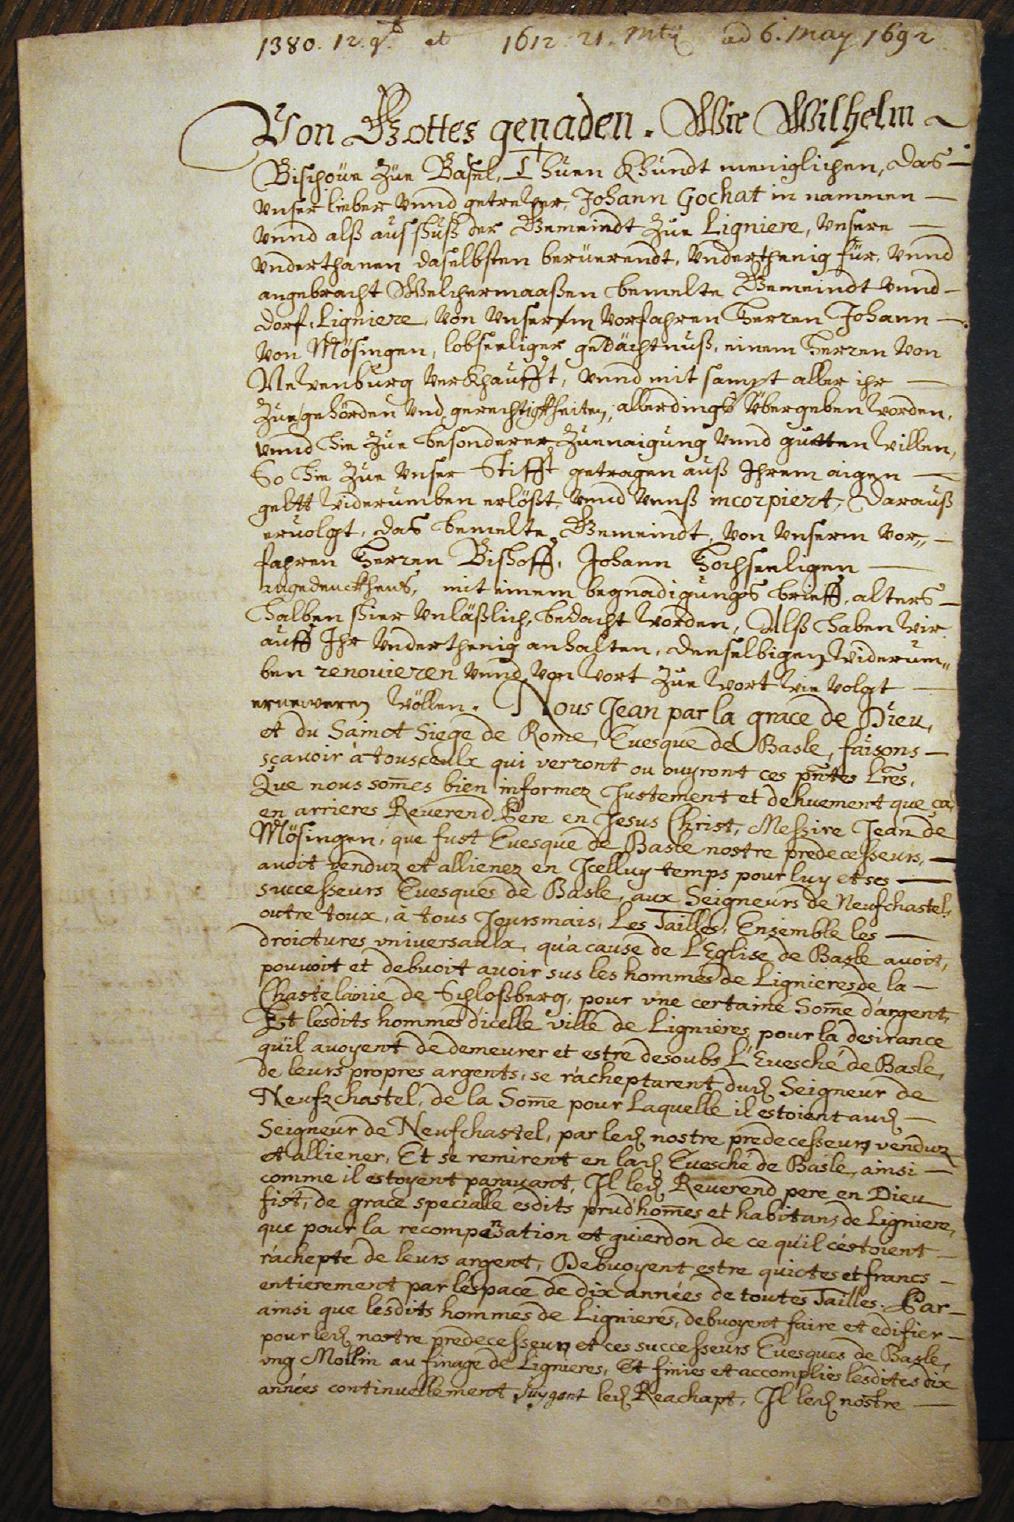 1380. 12. et 1612. 21. ad 6. May 1692
Von Gottes genaden. Wir Wilhelm
Bischoue Züe Basel, Thuen Khundt meniglichen, das
vnser lieber vnnd getrewer, Johann Gochat in nammen
vnnd alß außschuß der Gemeindt Züe Ligniere, vnsere
vnderthanen daselbsten berüerendt, vnderthenig für, vnnd
angebracht Welchermaaßen bemelte Gemeindt vnnd
dorf, Ligniere, von vnserm vorfahren Herren Johann
von Mösingen, lobseeliger gedächtnuß, einem Herren von
Newenburg verkhaufft, vnnd mit sampt aller ihr
Zuegehörden vnd gerechtigkheiten, allerdings übergeben worden,
vnnd Sie Züe besonderer Zuenaigung vnnd gutten willen,
So Sie Züe vnser Stifft getragen auß Ihrem aigen
geltt widerumben erlößt, vnnd vnnß incorpiert, darauß
ervolgt, das bemelte Gemeindt, von vnserm vor„
fahren Herren Bischoff, Johann Hochseeligen
angedenckhens, mit einem begnadigungs brieff, alters
halben schier vnläßlich, bedacht worden, Alß haben wir
auff Ihr vnderthenig anhalten, denselbigen widerum„
ben renouieren vnnd von wort Züe wort wie volgt
erneweren wöllen. Nous Jean par la grace de Dieu,
et du Sainct Siege de Rome, Euesque de Basle, faisons
sçauoir à tousceulx qui verront ou ouyront ces pñtes Lr̃es,
Que nous som̃es bien informez Justement et dehuement que ça
en arrieres Reuerend Pere en Jesus Christ, Messire Jean de
Mösingen, que fust Euesque de Basle nostre predecesseurs,
auoit venduz et allienez en Jcelluy temps pour luy et ses
successeurs Euesques de Basle, aux Seigneurs de Neufchastel,
outre toux, à tous Joursmais, Les Tailles, Ensemble les
droictures vniversaulx, qu'a cause de L'Eglise de Basle auoit,
pouuoit et debuoit auoir sus les hommes de Lignieres de la
Chastelainie de Schloßberg, pour vne certaine Som̃e d'argent,
Et lesdits hommes dicelle ville de Lignieres, pour la desirance
qu'il auoyent de demeurer et estre desoubs L'Euesché de Basle,
de leurs propres argents, se rácheptarent dud. Seigneur de
Neufzchastel, de la Som̃e pour Laquelle il estoient aud.
Seigneur de Neufchastel, par led. nostre predecesseurs venduz
et alliener, Et se remirent en lad. Euesché de Basle, ainsi
comme il estoyent parauant, Il led. Reuerend pere en Dieu
fist, de grace specialle esdits prud'hom̃es et habitans de Ligniere,
que pour la recompensation et guierdon de ce qu'il c'estoient
ráchepté de leurs argent, Debuoyent estre quictes et francs
entierement par l'espace de dix années de toutes Tailles. Par
ainsi que lesdits hommes de Lignieres, debuoyent faire et edifier
pour led. nostre predecesseur et ces successeurs Euesques de Basle,
vng Mollin au finage de Lignieres, Et finies et accomplies lesdites dix
années continuellement suygant led. Reachapt, Il led. nostre